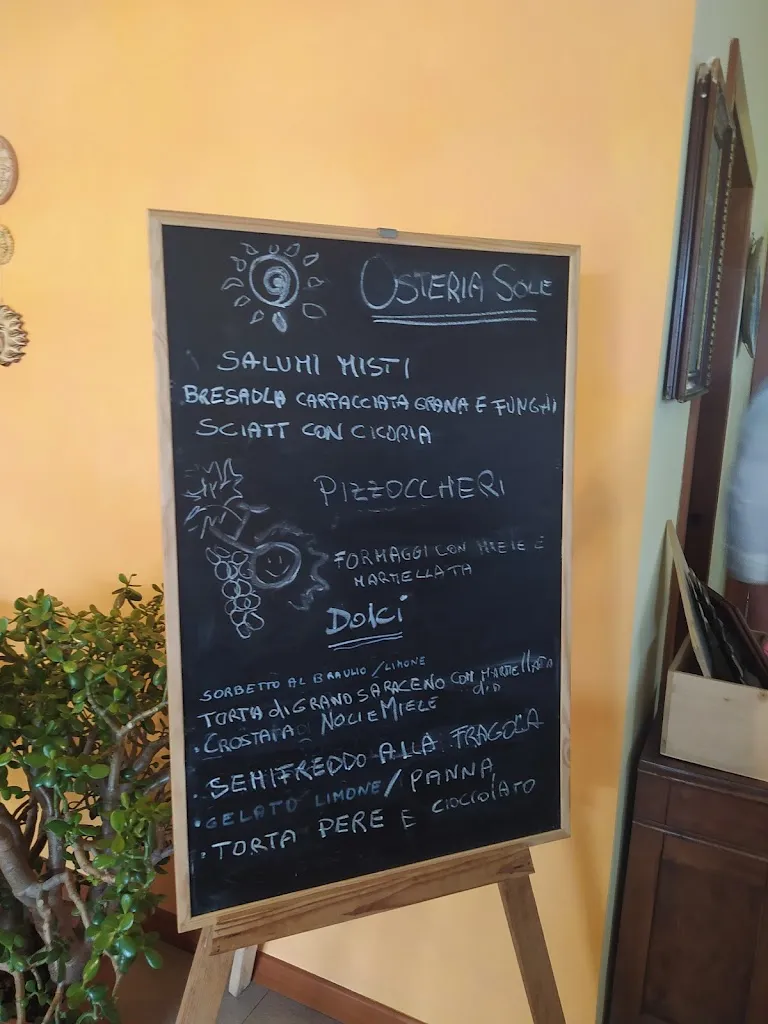 OSTERIA SOLE
SALUMI MISTI
BRESAOLA CARPACCIATA GRANA E FUNGHI
SCIATT CON CICORIA
PIZZOCCHERI
FORMAGGI CON MIELE E
MARMELLATA
DOLCI
SORBETTO AL BRAULIO/LIMONE
TORTA di GRANO SARACENO CON MARMELLATA
di
• CROSTATA NOCI E MIELE
• SEMIFREDDO ALLA FRAGOLA
• GELATO LIMONE/PANNA
• TORTA PERE E CIOCCOLATO